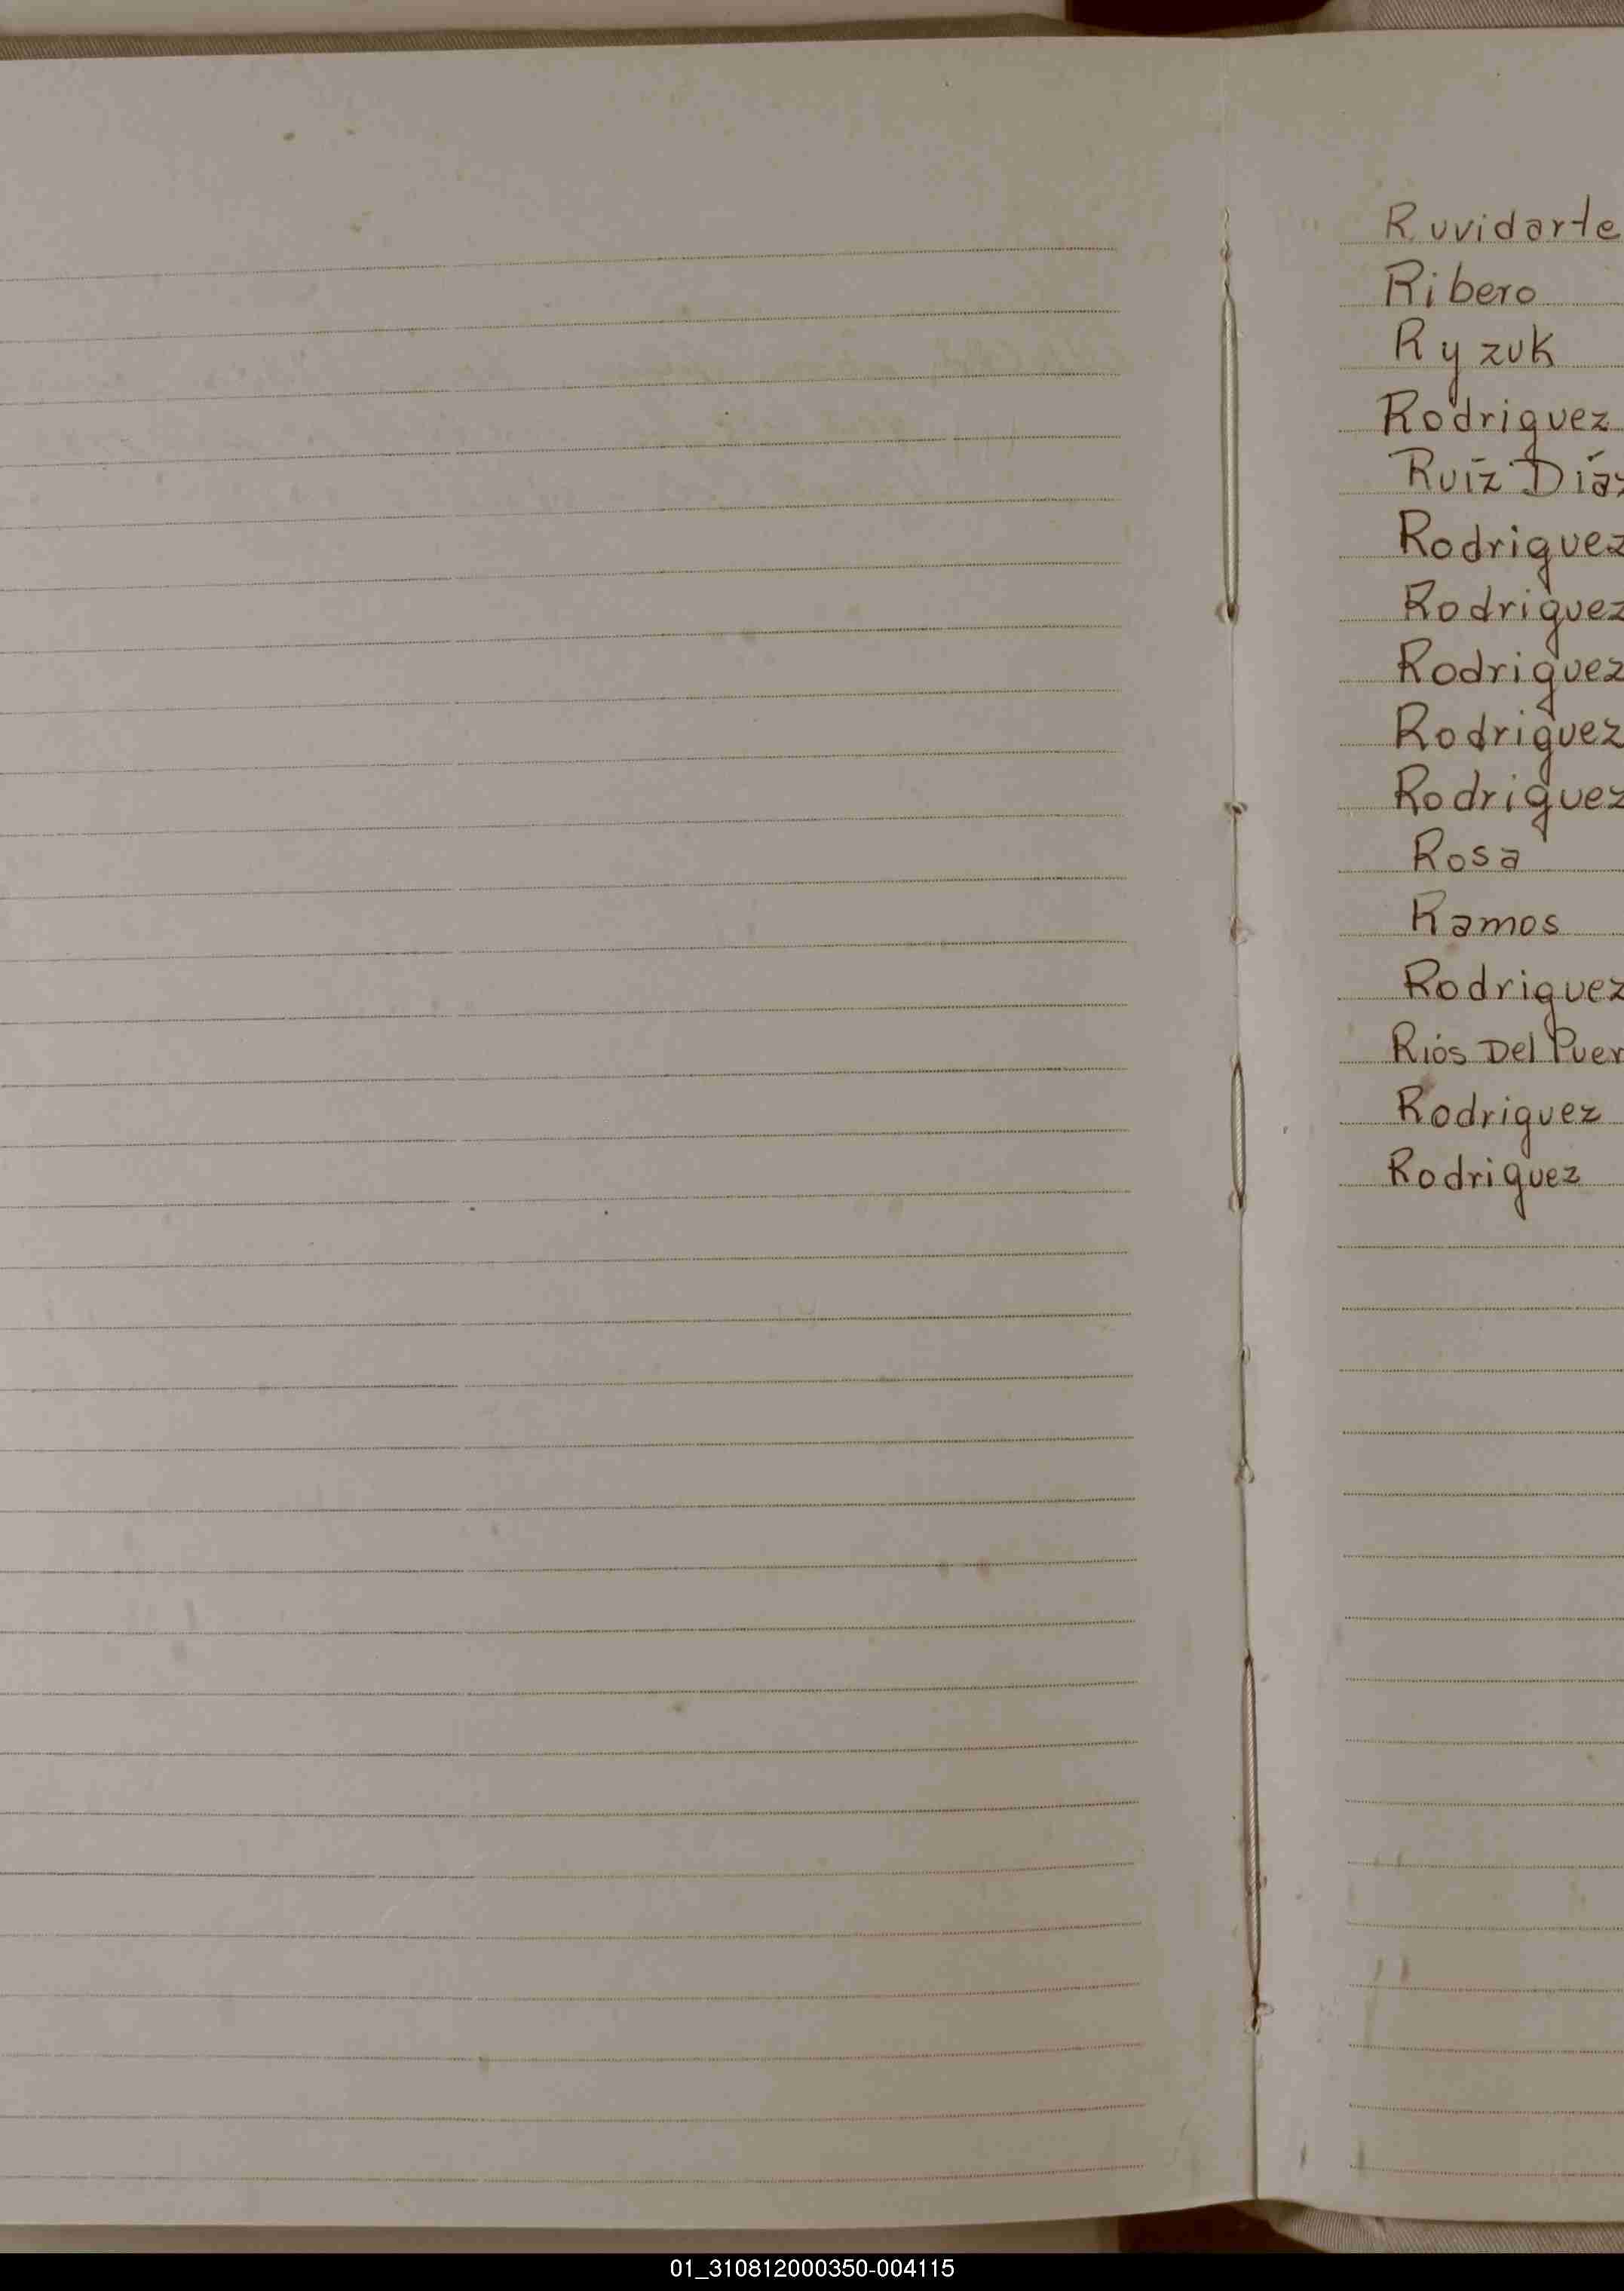 Ruvidarte
Ribero
Ryzuk
Rodriguez
Ruíz Díaz
Rodriguez
Rodriguez
Rodriguez
Rodriguez
Rodriguez
Rosa
Ramos
Rodriguez
Riós Del Puer
Rodriguez
Rodriguez
01_310812000350-004115